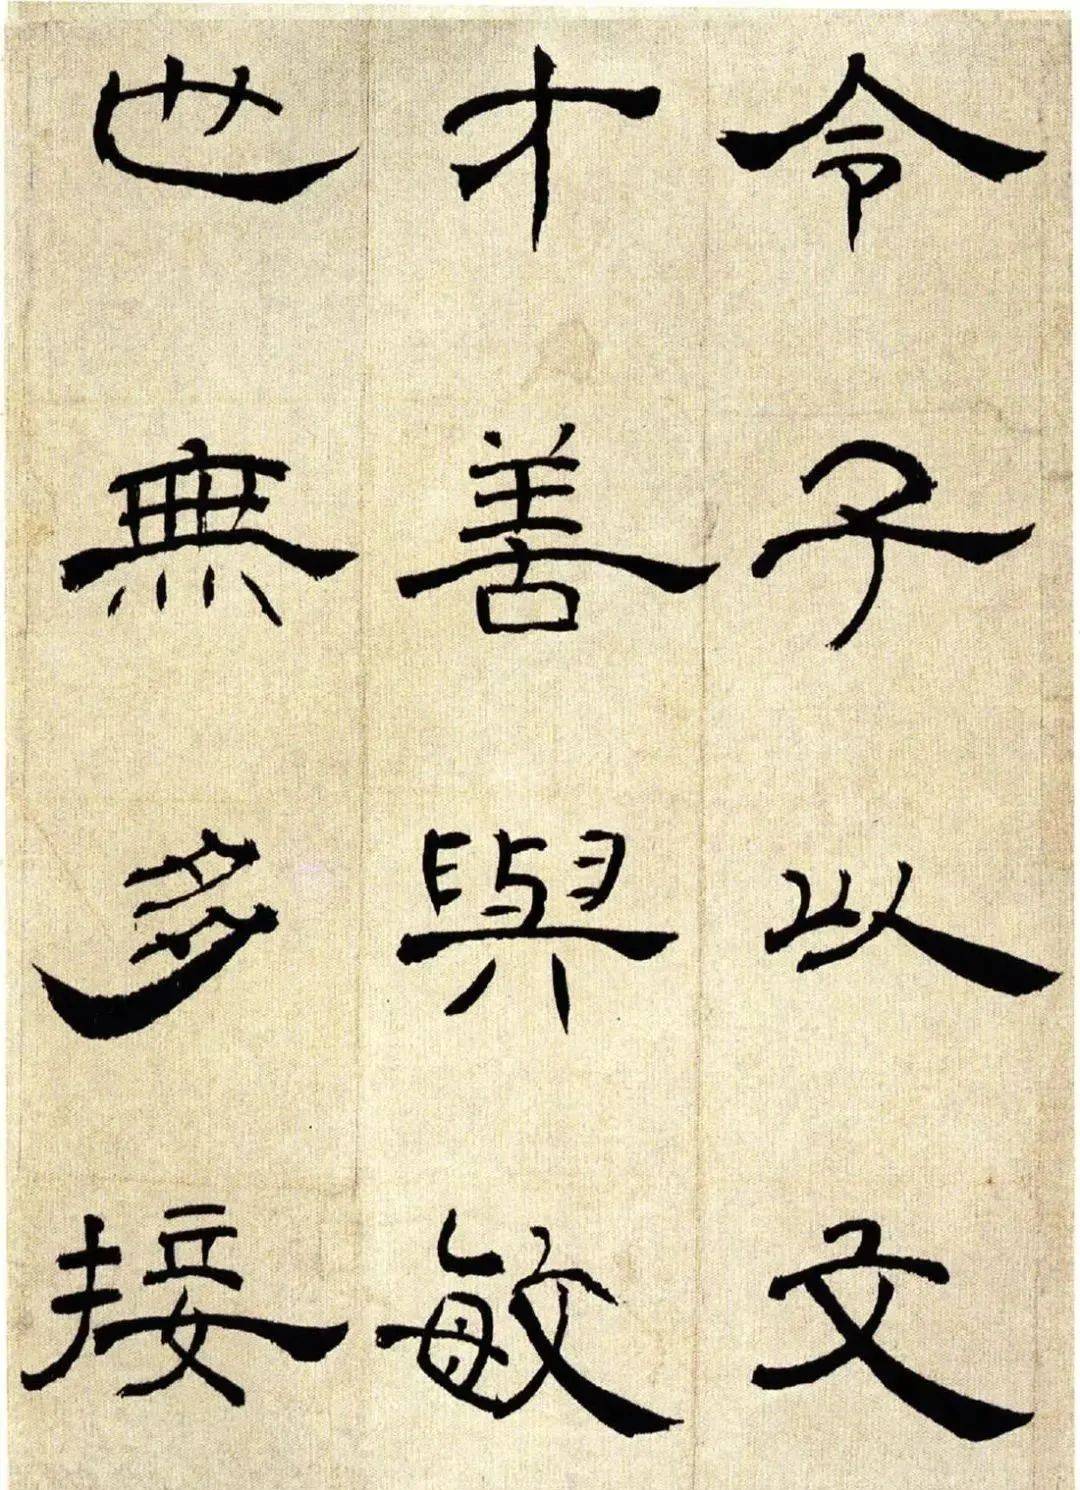 令子以文
才善與敏
世無多接